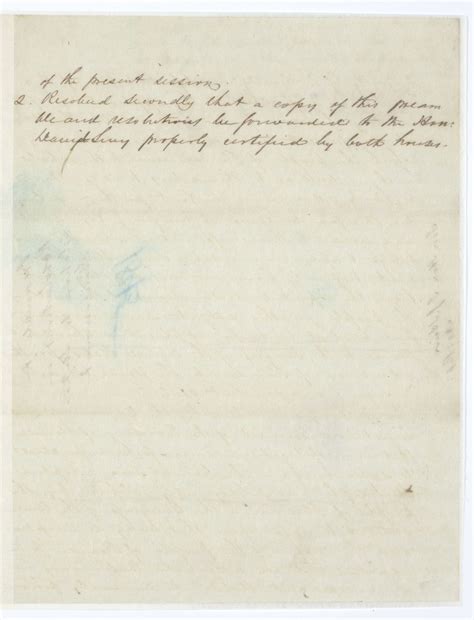 of the present session.
2. Resolved secondly that a copy of this pream
ble and resolutions be forwarded to the Hon:
David Levy properly certified by both houses.